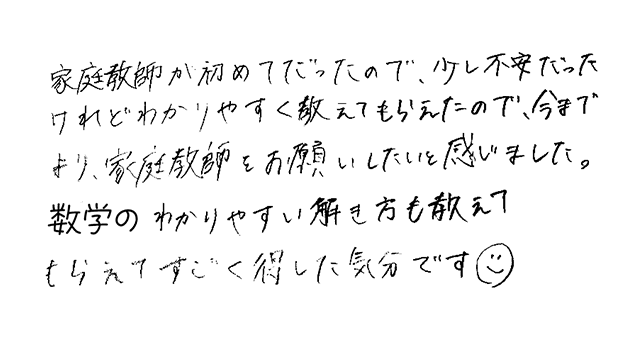 家庭教師が初めてだったので、少し不安だった
けれどわかりやすく教えてもらえたので、今まで
より、家庭教師をお願いしたいと感じました。
数学のわかりやすい解き方も教えて
もらえてすごく得した気分です☺